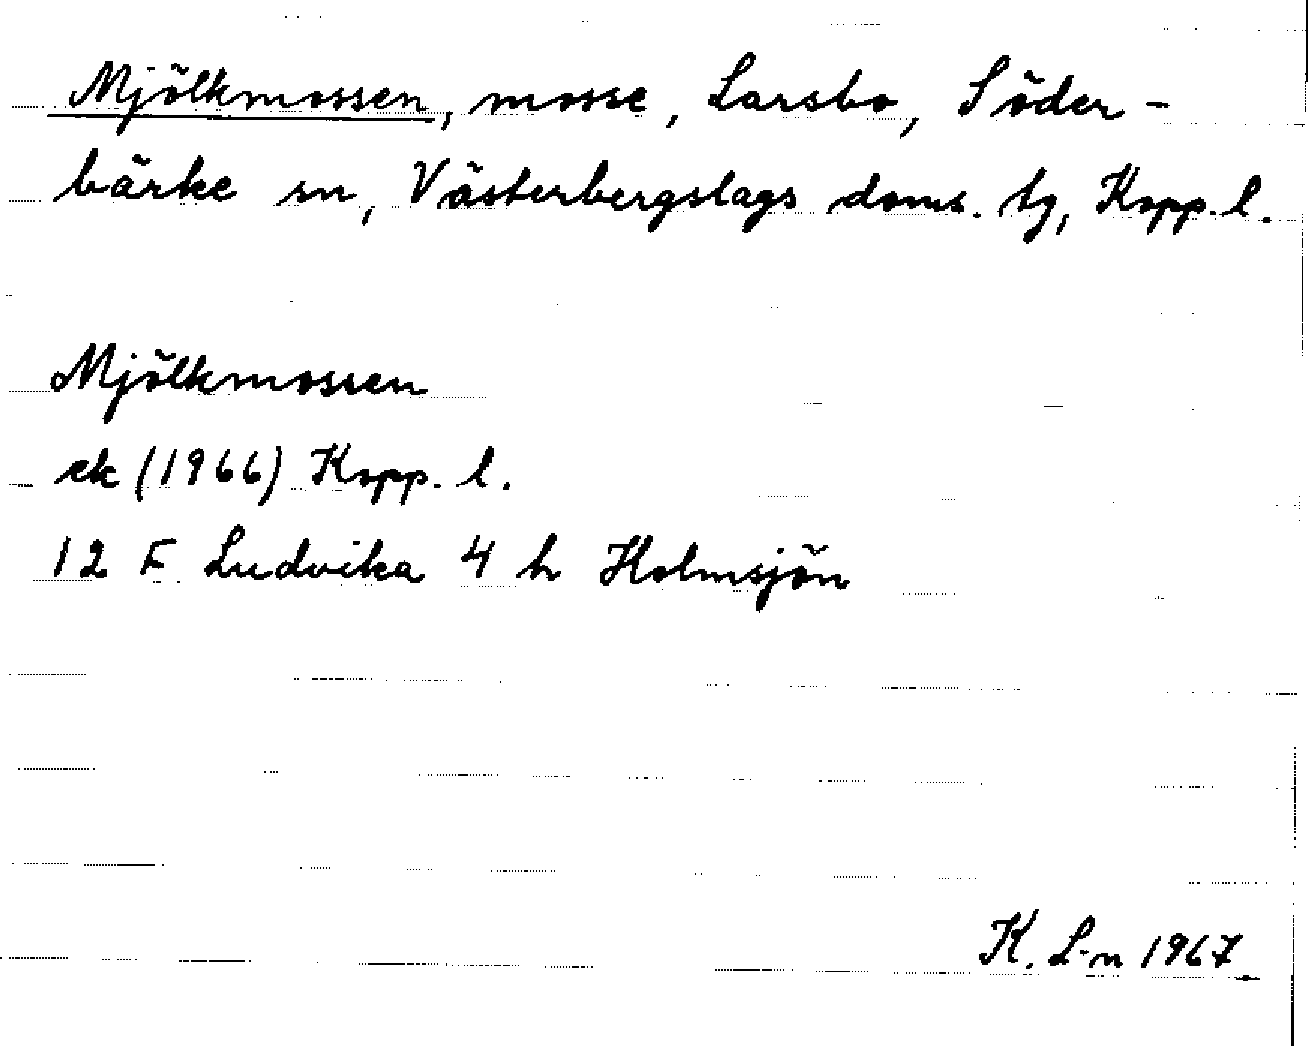 Mjölkmossen, mosse, Larsbo, Söder-
bärke sn, Västerbergslags doms. tg, Kopp. l.
Mjölkmossen
ek (1966) Kopp. l.
12 F Ludvika 4 h Holmsjön
K. L-n 1967